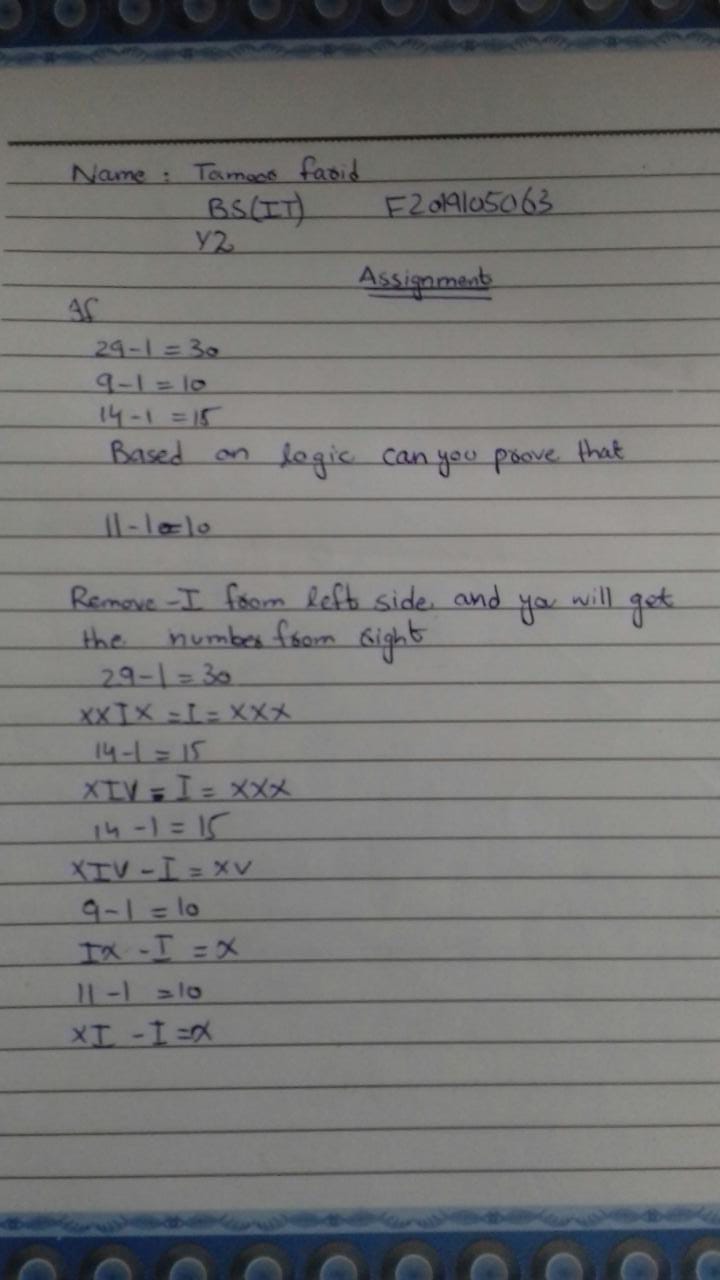 Name : Tamoor farid
BS(IT) F2019105063
Y2
Assignment
If
29-1 = 30
9-1 = 10
14-1 = 15
Based on logic can you prove that
11-1=10
Remove -I from left side, and you will get
the number from right
29-1 = 30
XXIX = I = XXX
14-1 = 15
XIV = I = XXX
14 -1 = 15
XIV - I = XV
9-1 = 10
IX - I = X
11-1 =10
XI - I = X